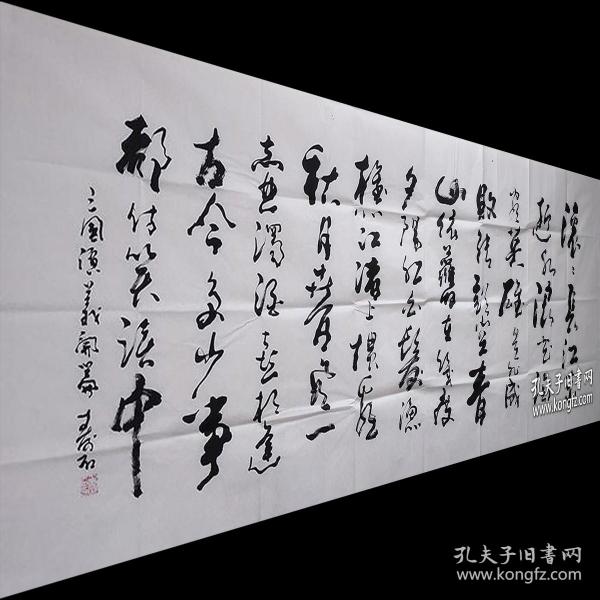 滚滚長江
逝水浪花淘
盡英雄是非成
敗转頭空青
山依舊在幾度
夕陽红白髮漁
樵江渚上慣看
秋月春風一
壶濁酒喜相逢
古今多少事
都付笑談中
三國演義開篇
孔夫子旧书网
www.kongfz.com
孔夫子旧書网
www.kongfz.com